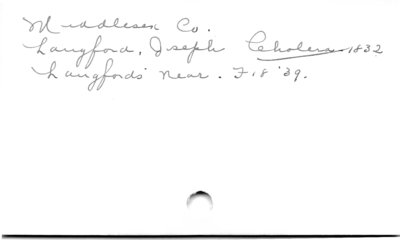 Middlesex Co.
Langford, Joseph Cholera 1832
Langfords near. F 18 '39.